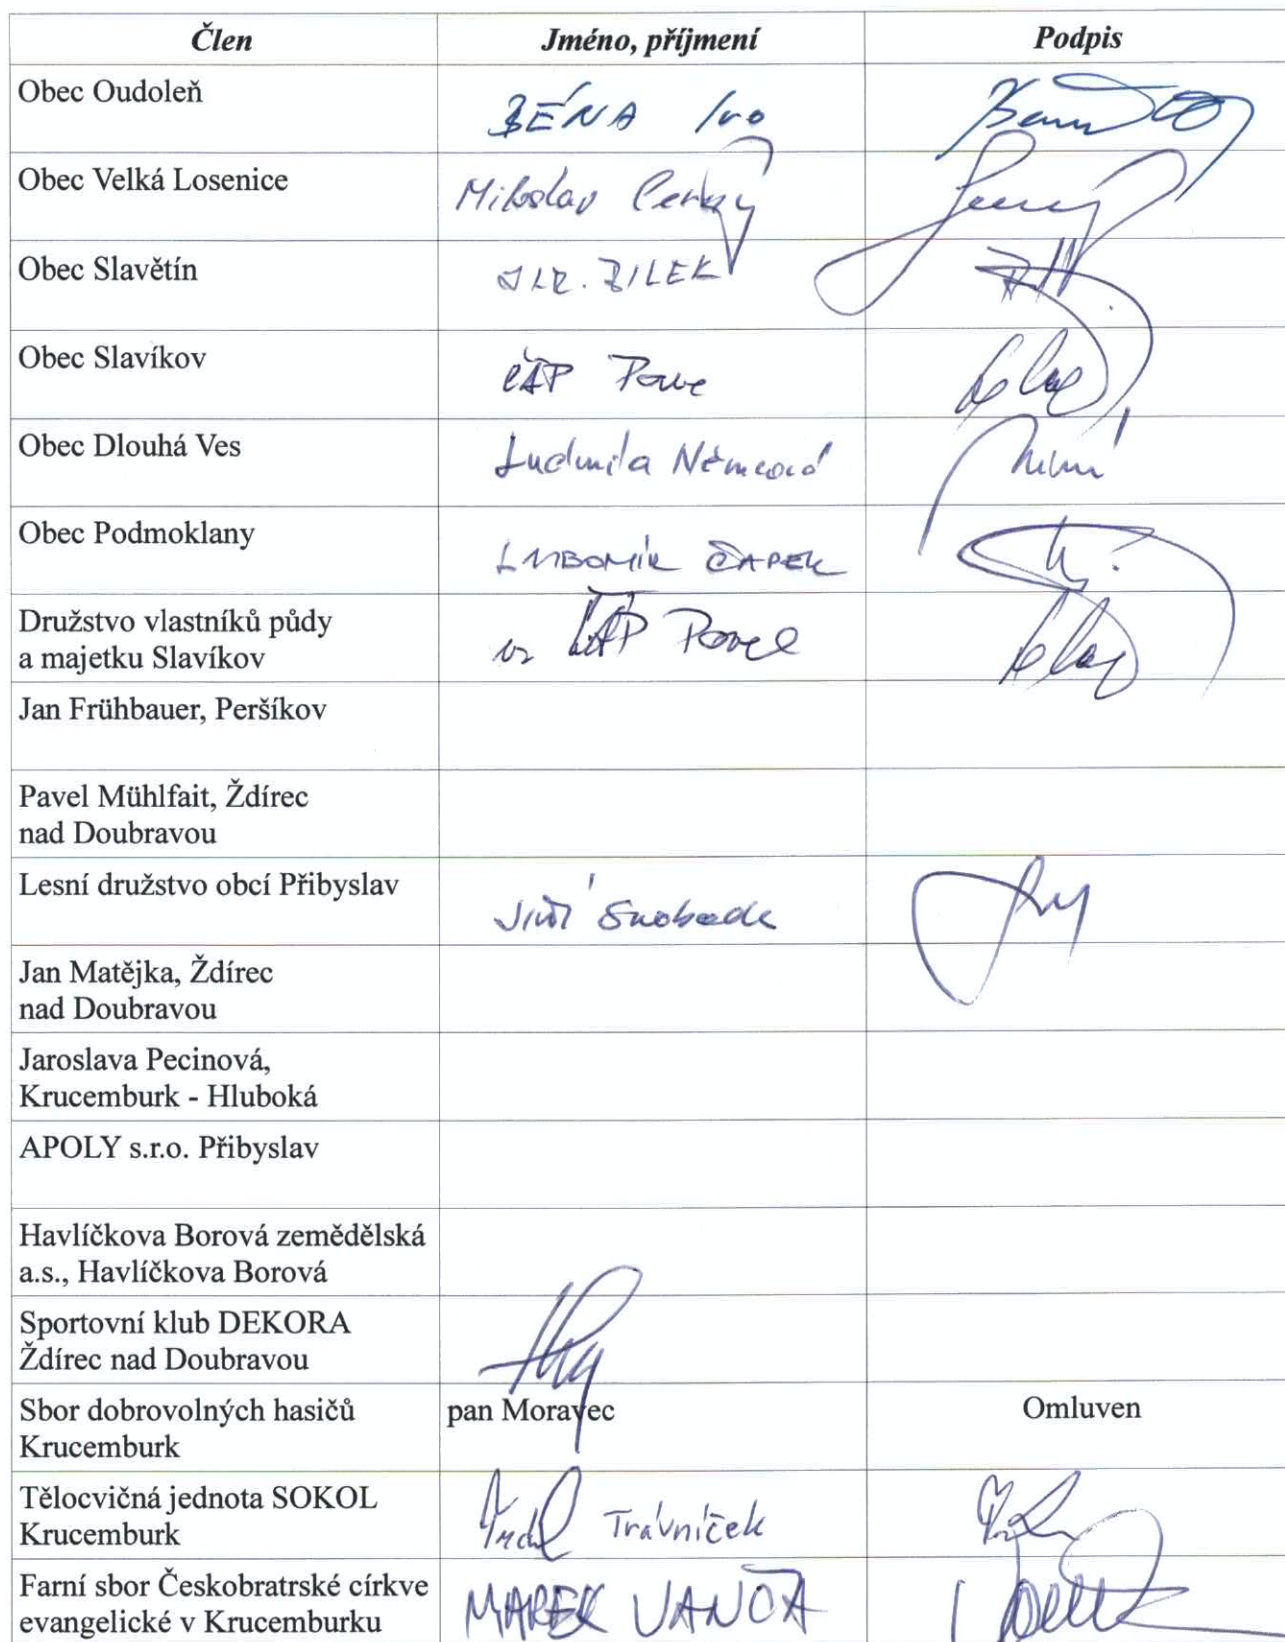 Člen Jméno, příjmení Podpis
Obec Oudoleň BÉNA Ivo
Obec Velká Losenice Miloslav Černý
Obec Slavětín JIR. ZILEK
Obec Slavíkov ČÁP
Obec Dlouhá Ves Ludmila Němcová
Obec Podmoklany LUBOMÍR ČAPEK
Družstvo vlastníků půdy
a majetku Slavíkov vz ČÁP Pavel
Jan Frühbauer, Peršíkov
Pavel Mühlfait, Ždírec
nad Doubravou
Lesní družstvo obcí Přibyslav Jiří Svoboda
Jan Matějka, Ždírec
nad Doubravou
Jaroslava Pecinová,
Krucemburk - Hluboká
APOLY s.r.o. Přibyslav
Havlíčkova Borová zemědělská
a.s., Havlíčkova Borová
Sportovní klub DEKORA
Ždírec nad Doubravou
Sbor dobrovolných hasičů pan Moravec Omluven
Krucemburk
Tělocvičná jednota SOKOL
Krucemburk Trávníček
Farní sbor Českobratrské církve
evangelické v Krucemburku MAREK VANČA